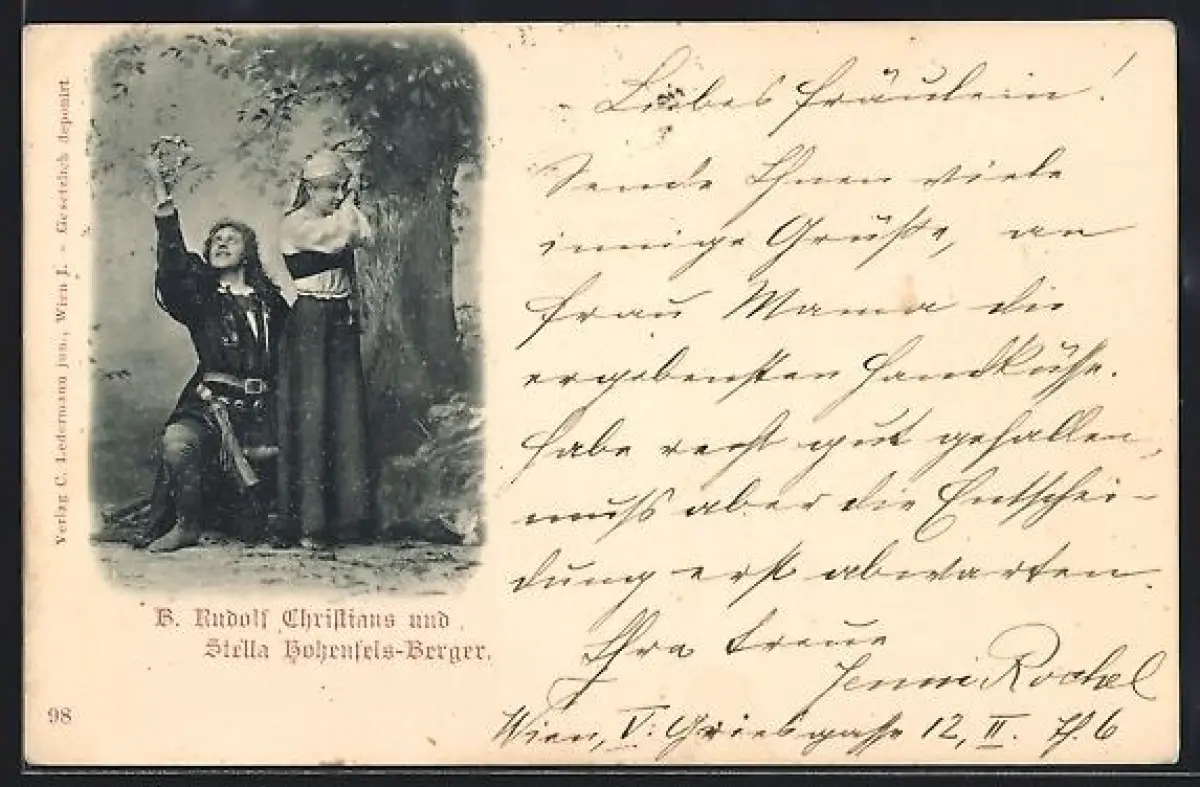 Verlag C. Ledermann jun., Wien I. - Gesetzlich deponirt
B. Rudolf Christians und
Stella Hohenfels-Berger.
98
Liebes Fräulein!
Sende Ihnen viele
innige Grüße, an
Frau Mama die
ergebensten Handküsse.
Habe recht gut gefallen,
muss aber die Entschei-
dung erst abwarten.
Ihre treue
Jenni Rochel
Wien, V. Griesgasse 12, II. Th. 6